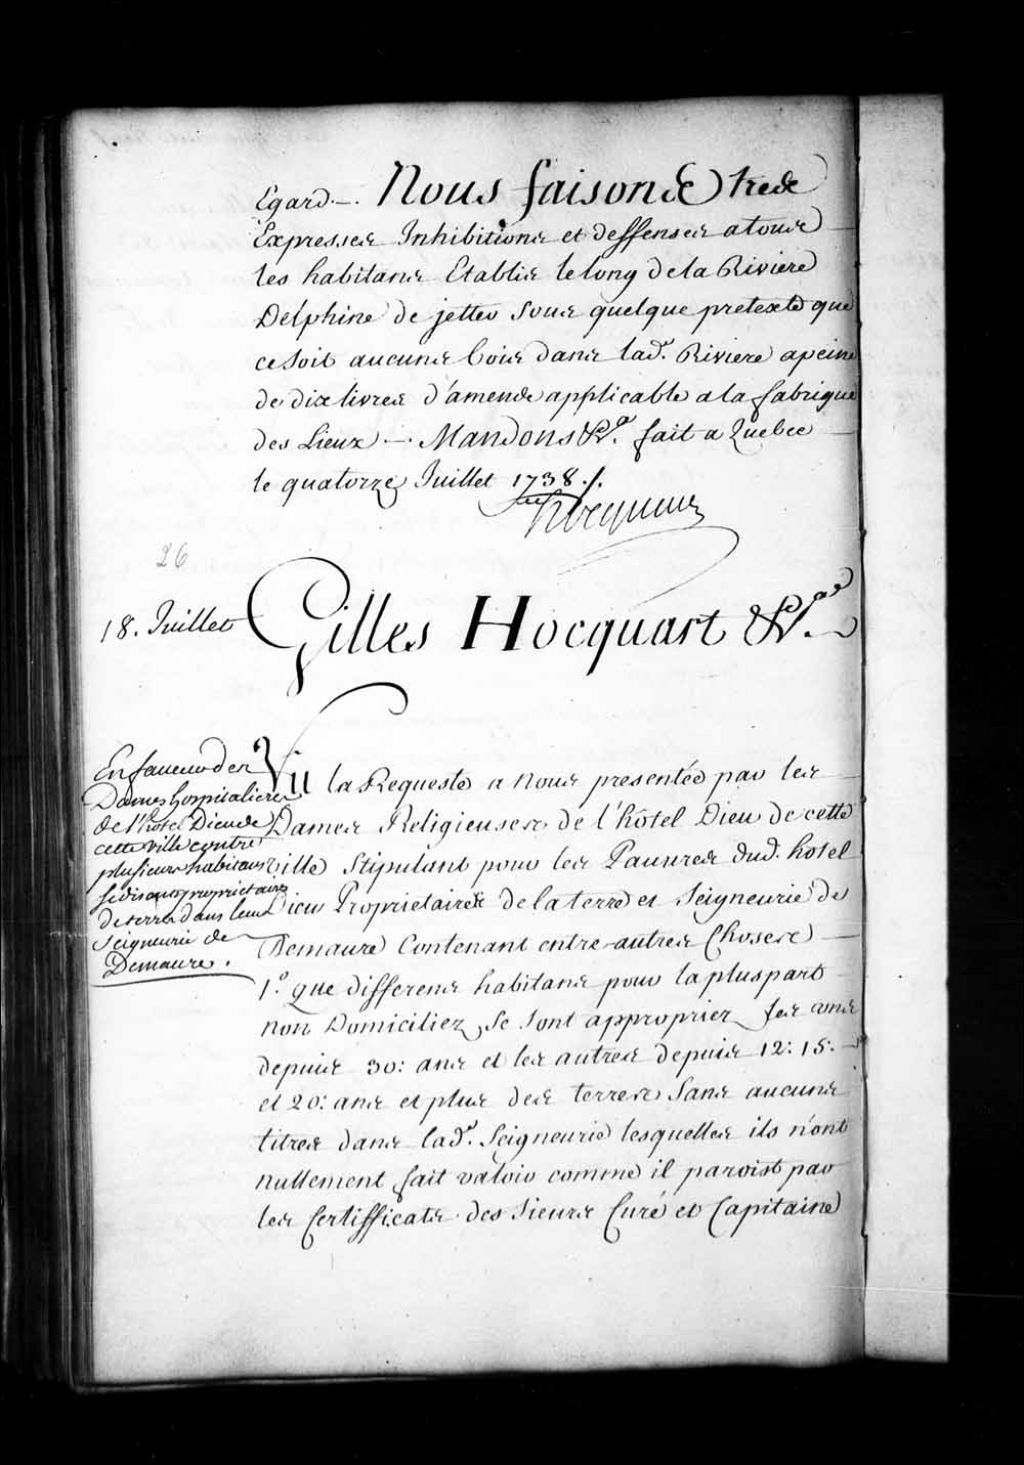 Egard. — . Nous faisons tres
Expresses Inhibitions et deffenses a tous
les habitans Etablis le long de la Riviere
Delphine de jetter sous quelque pretexte que
ce soit aucuns bois dans lad.e Riviere a peine
de dix livres d'amende applicable a la fabrique
des Lieux — . Mandons &c.a fait a Quebec
le quatorze Juillet 1738 ./.
Hocquart
26
18. Juillet
Gilles Hocquart &c.a
En faveur des
Dames hospitalieres
de l'hotel Dieu de
cette ville contre
plusieurs habitans
se disans proprietaires
de terres dans leur
Seigneurie de
Demaure .
Vu la Requeste a nous presentée par les
Dames Religieuses de l'hôtel Dieu de cette
ville Stipulant pour les Pauvres dud. hotel
Dieu Proprietaires de la terre et Seigneurie de
Demaure Contenant entre-autres Choses
1.o que differens habitans pour la pluspart
non Domiciliez, se sont approprier les uns
depuis 30: ans et les autres depuis 12: 15:
et 20: ans et plus des terres Sans aucuns
titres dans lad.e Seigneurie lesquelles ils n'ont
nullement fait valoir comme il paroist par
les Certifficats des Sieurs Curé et Capitaine